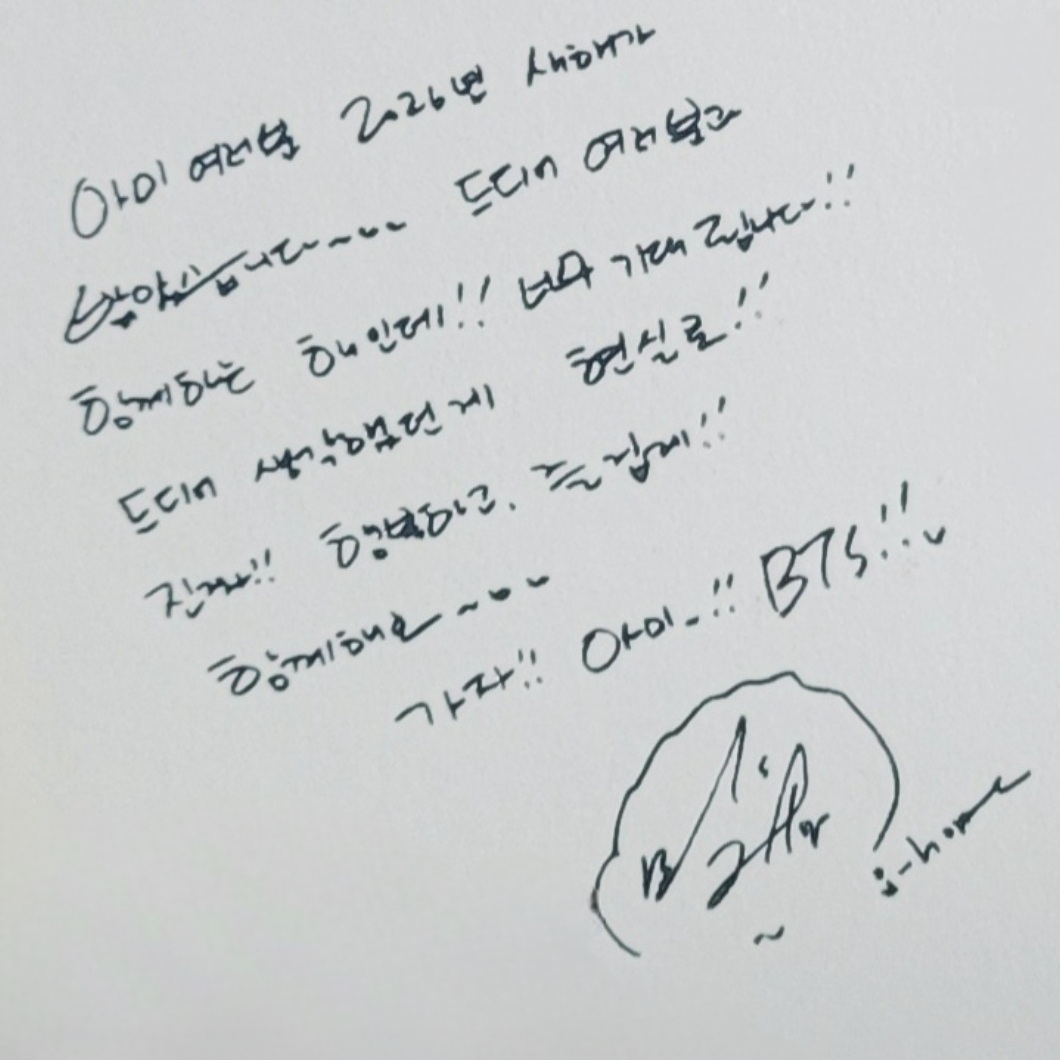 아미 여러분 2026년 새해가
밝았습니다~~ᴗᴗ 드디어 여러분과
함께하는 해인데!! 너무 기대됩니다!!
드디어 생각했던 게 현실로!!
진짜!! 행복하고. 즐겁게!!
함께해요~ᴗᴗ
가자!! 아미-!! BTS!!
j-hope